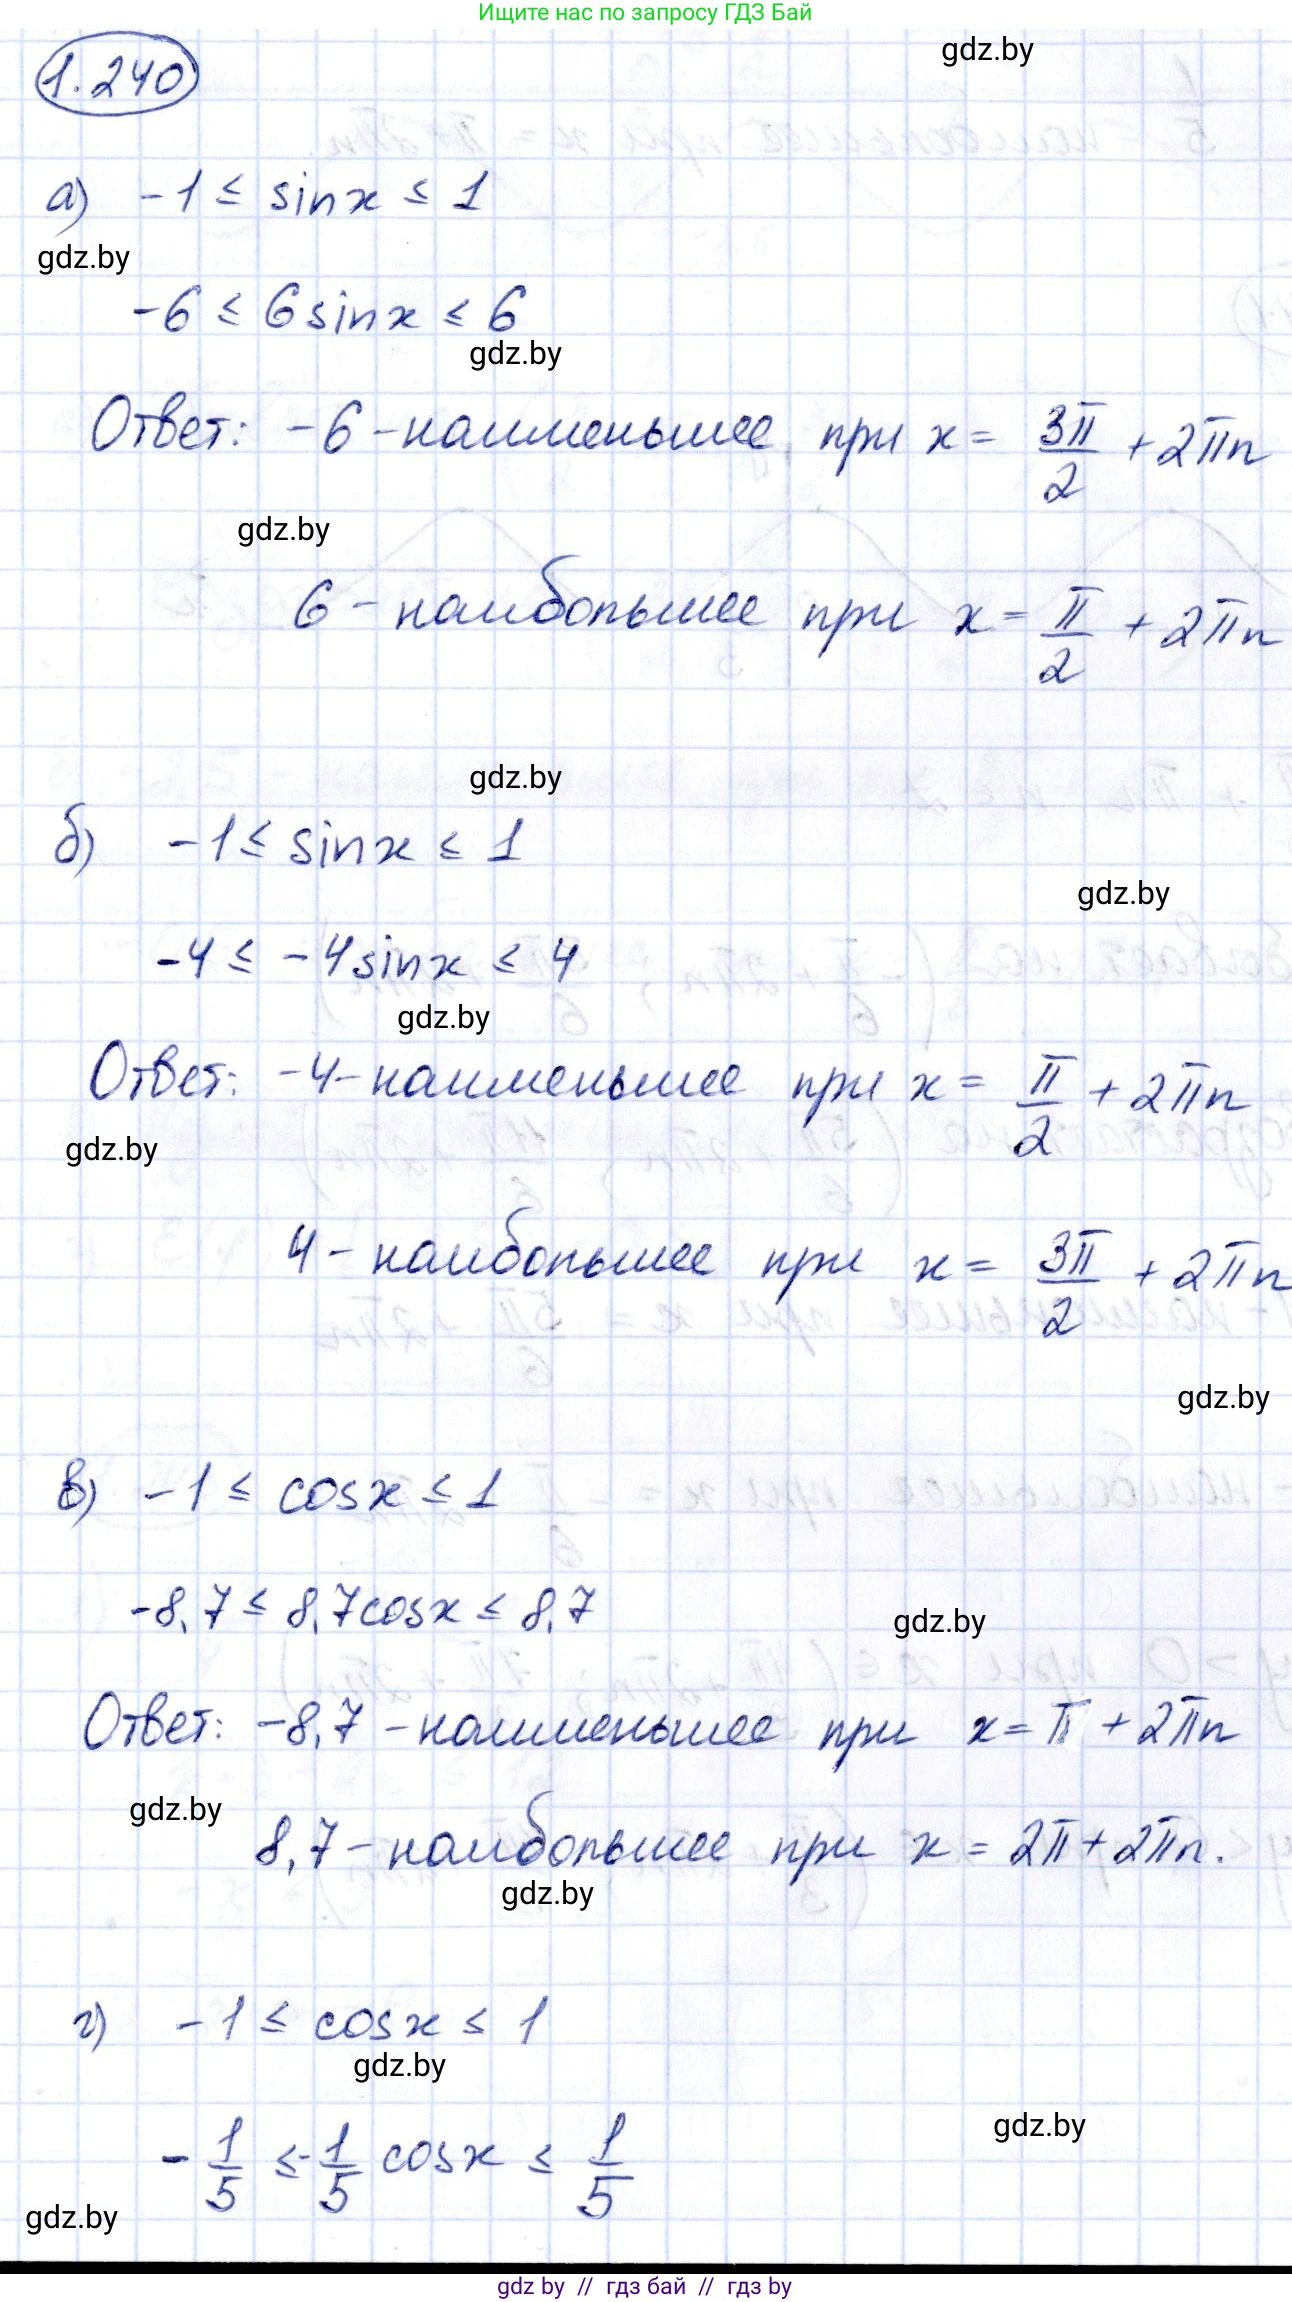 Ищите нас по запросу ГДЗ Бай
gdz.by
1.240
а) -1 ≤ sinx ≤ 1
gdz.by
-6 ≤ 6sinx ≤ 6
gdz.by
Ответ: -6 - наименьшее при x = 3π/2 + 2πn
gdz.by
6 - наибольшее при x = π/2 + 2πn
gdz.by
б) -1 ≤ sinx ≤ 1
gdz.by
-4 ≤ -4sinx ≤ 4
gdz.by
Ответ: -4 - наименьшее при x = π/2 + 2πn
gdz.by
4 - наибольшее при x = 3π/2 + 2πn
gdz.by
в) -1 ≤ cosx ≤ 1
-8,7 ≤ 8,7cosx ≤ 8,7
gdz.by
Ответ: -8,7 - наименьшее при x = π + 2πn
gdz.by
8,7 - наибольшее при x = 2π + 2πn.
gdz.by
г) -1 ≤ cosx ≤ 1
gdz.by
gdz.by
-1/5 ≤ -1/5 cosx ≤ 1/5
gdz.by
gdz by // гдз бай // гдз by